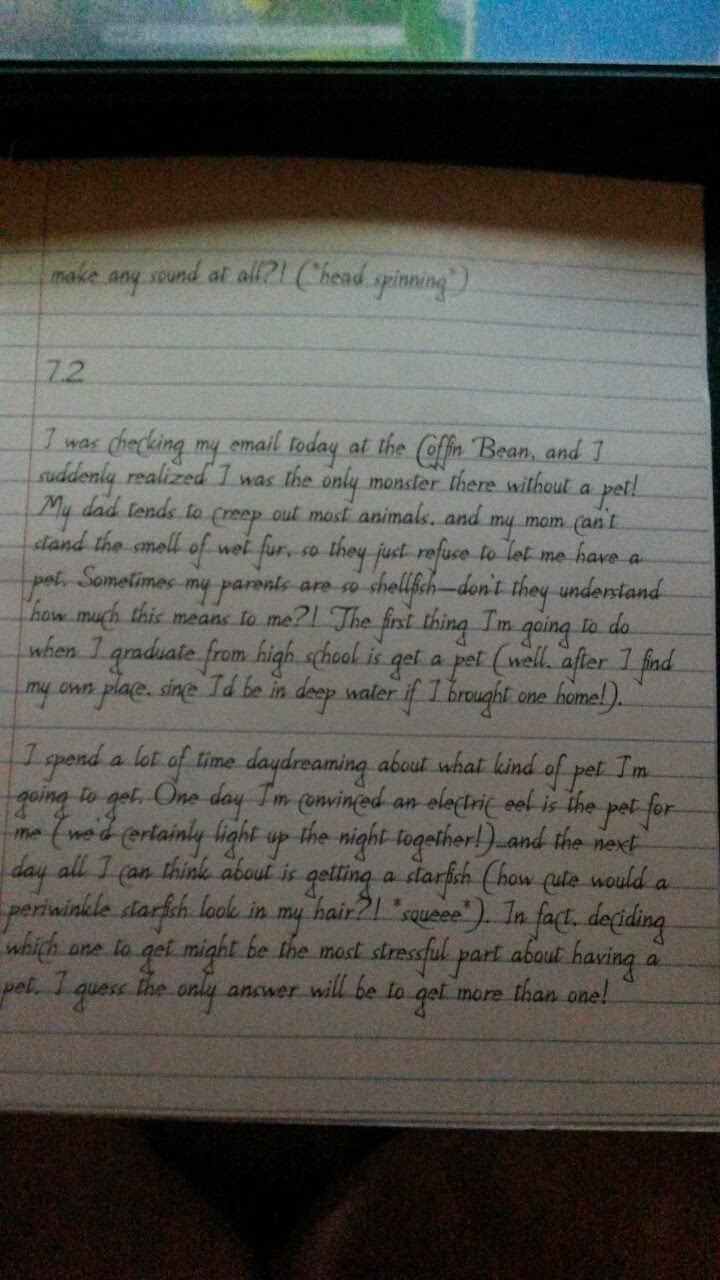 make any sound at all?! (*head spinning*)
7.2
I was checking my email today at the Coffin Bean, and I
suddenly realized I was the only monster there without a pet!
My dad tends to creep out most animals, and my mom can't
stand the smell of wet fur, so they just refuse to let me have a
pet. Sometimes my parents are so shellfish—don't they understand
how much this means to me?! The first thing I'm going to do
when I graduate from high school is get a pet (well, after I find
my own place, since I'd be in deep water if I brought one home!).
I spend a lot of time daydreaming about what kind of pet I'm
going to get. One day I'm convinced an electric eel is the pet for
me (we'd certainly light up the night together!)...and the next
day all I can think about is getting a starfish (how cute would a
periwinkle starfish look in my hair?! *squeee*). In fact, deciding
which one to get might be the most stressful part about having a
pet. I guess the only answer will be to get more than one!